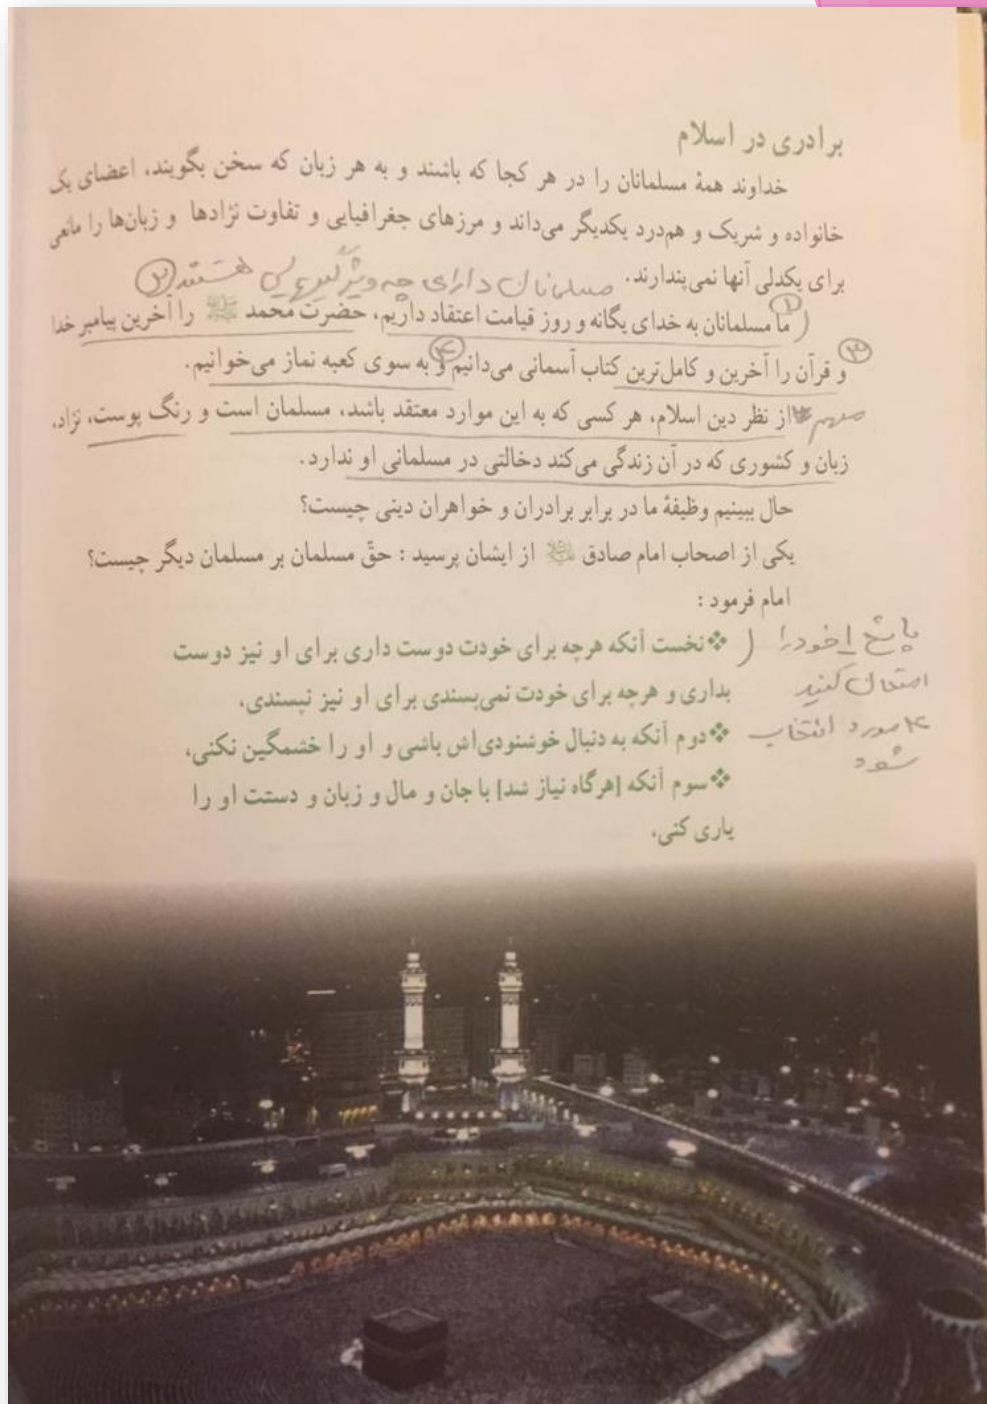 برادری در اسلام
خداوند همهٔ مسلمانان را در هر کجا که باشند و به هر زبان که سخن بگویند، اعضای یک
خانواده و شریک و هم‌درد یکدیگر می‌داند و مرزهای جغرافیایی و تفاوت نژادها و زبان‌ها را مانعی
برای یکدلی آنها نمی‌پندارند. مسلمانان دارای چه ویژگیهایی هستند ۲
۱ ما مسلمانان به خدای یگانه و روز قیامت اعتقاد داریم، حضرت محمد ﷺ را آخرین پیامبر خدا
۳ و قرآن را آخرین و کامل‌ترین کتاب آسمانی می‌دانیم ۴ و به سوی کعبه نماز می‌خوانیم.
مهم از نظر دین اسلام، هر کسی که به این موارد معتقد باشد، مسلمان است و رنگ پوست، نژاد،
زبان و کشوری که در آن زندگی می‌کند دخالتی در مسلمانی او ندارد.
حال ببینیم وظیفهٔ ما در برابر برادران و خواهران دینی چیست؟
یکی از اصحاب امام صادق از ایشان پرسید : حقّ مسلمان بر مسلمان دیگر چیست؟
امام فرمود :
❖نخست آنکه هرچه برای خودت دوست داری برای او نیز دوست
بداری و هرچه برای خودت نمی‌پسندی برای او نیز نپسندی.
❖دوم آنکه به دنبال خوشنودی‌اش باشی و او را خشمگین نکنی.
❖سوم آنکه [هرگاه نیاز شد] با جان و مال و زبان و دستت او را
یاری کنی.
پاسخ خود را
امتحان کنید
مورد انتخاب
شود